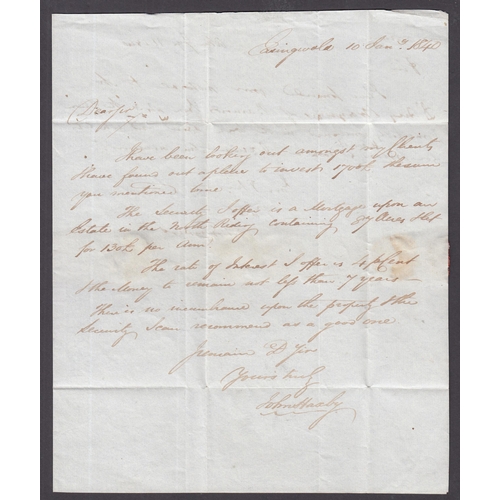 Easingwold 10 Jany. 1840
Dear Sir
I have been looking out amongst my Clients
& have found out a place to invest 1700£. the sum
you mentioned
The Security I offer is a Mortgage upon an
Estate in the North Riding containing 87 Acres & let
for 130£ per Ann:
The rate of Interest I offer is 4 pCent
& the Money to remain not less than 7 years —
There is no incumbrance upon the property & the
Security I can recommend as a good one
I remain D Sir
Yours truly
John Haxby